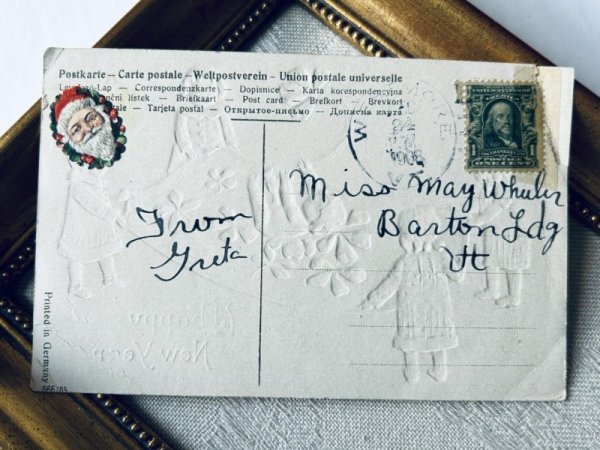 Postkarte – Carte postale – Weltpostverein – Union postale universelle
Levelező-Lap – Correspondenzkarte – Dopisnice – Karta korespondencyjna
listek – Briefkaart – Post card – Brefkort – Brevkort
Tarjeta postal – Открытое-письмо – Дописна карта
UNITED STATES OF AMERICA
1 1
POSTAGE
ONE CENT
Miss May Wheeler
Barton Ldg
Vt
From
Greta
Happy
New Year
Printed in Germany